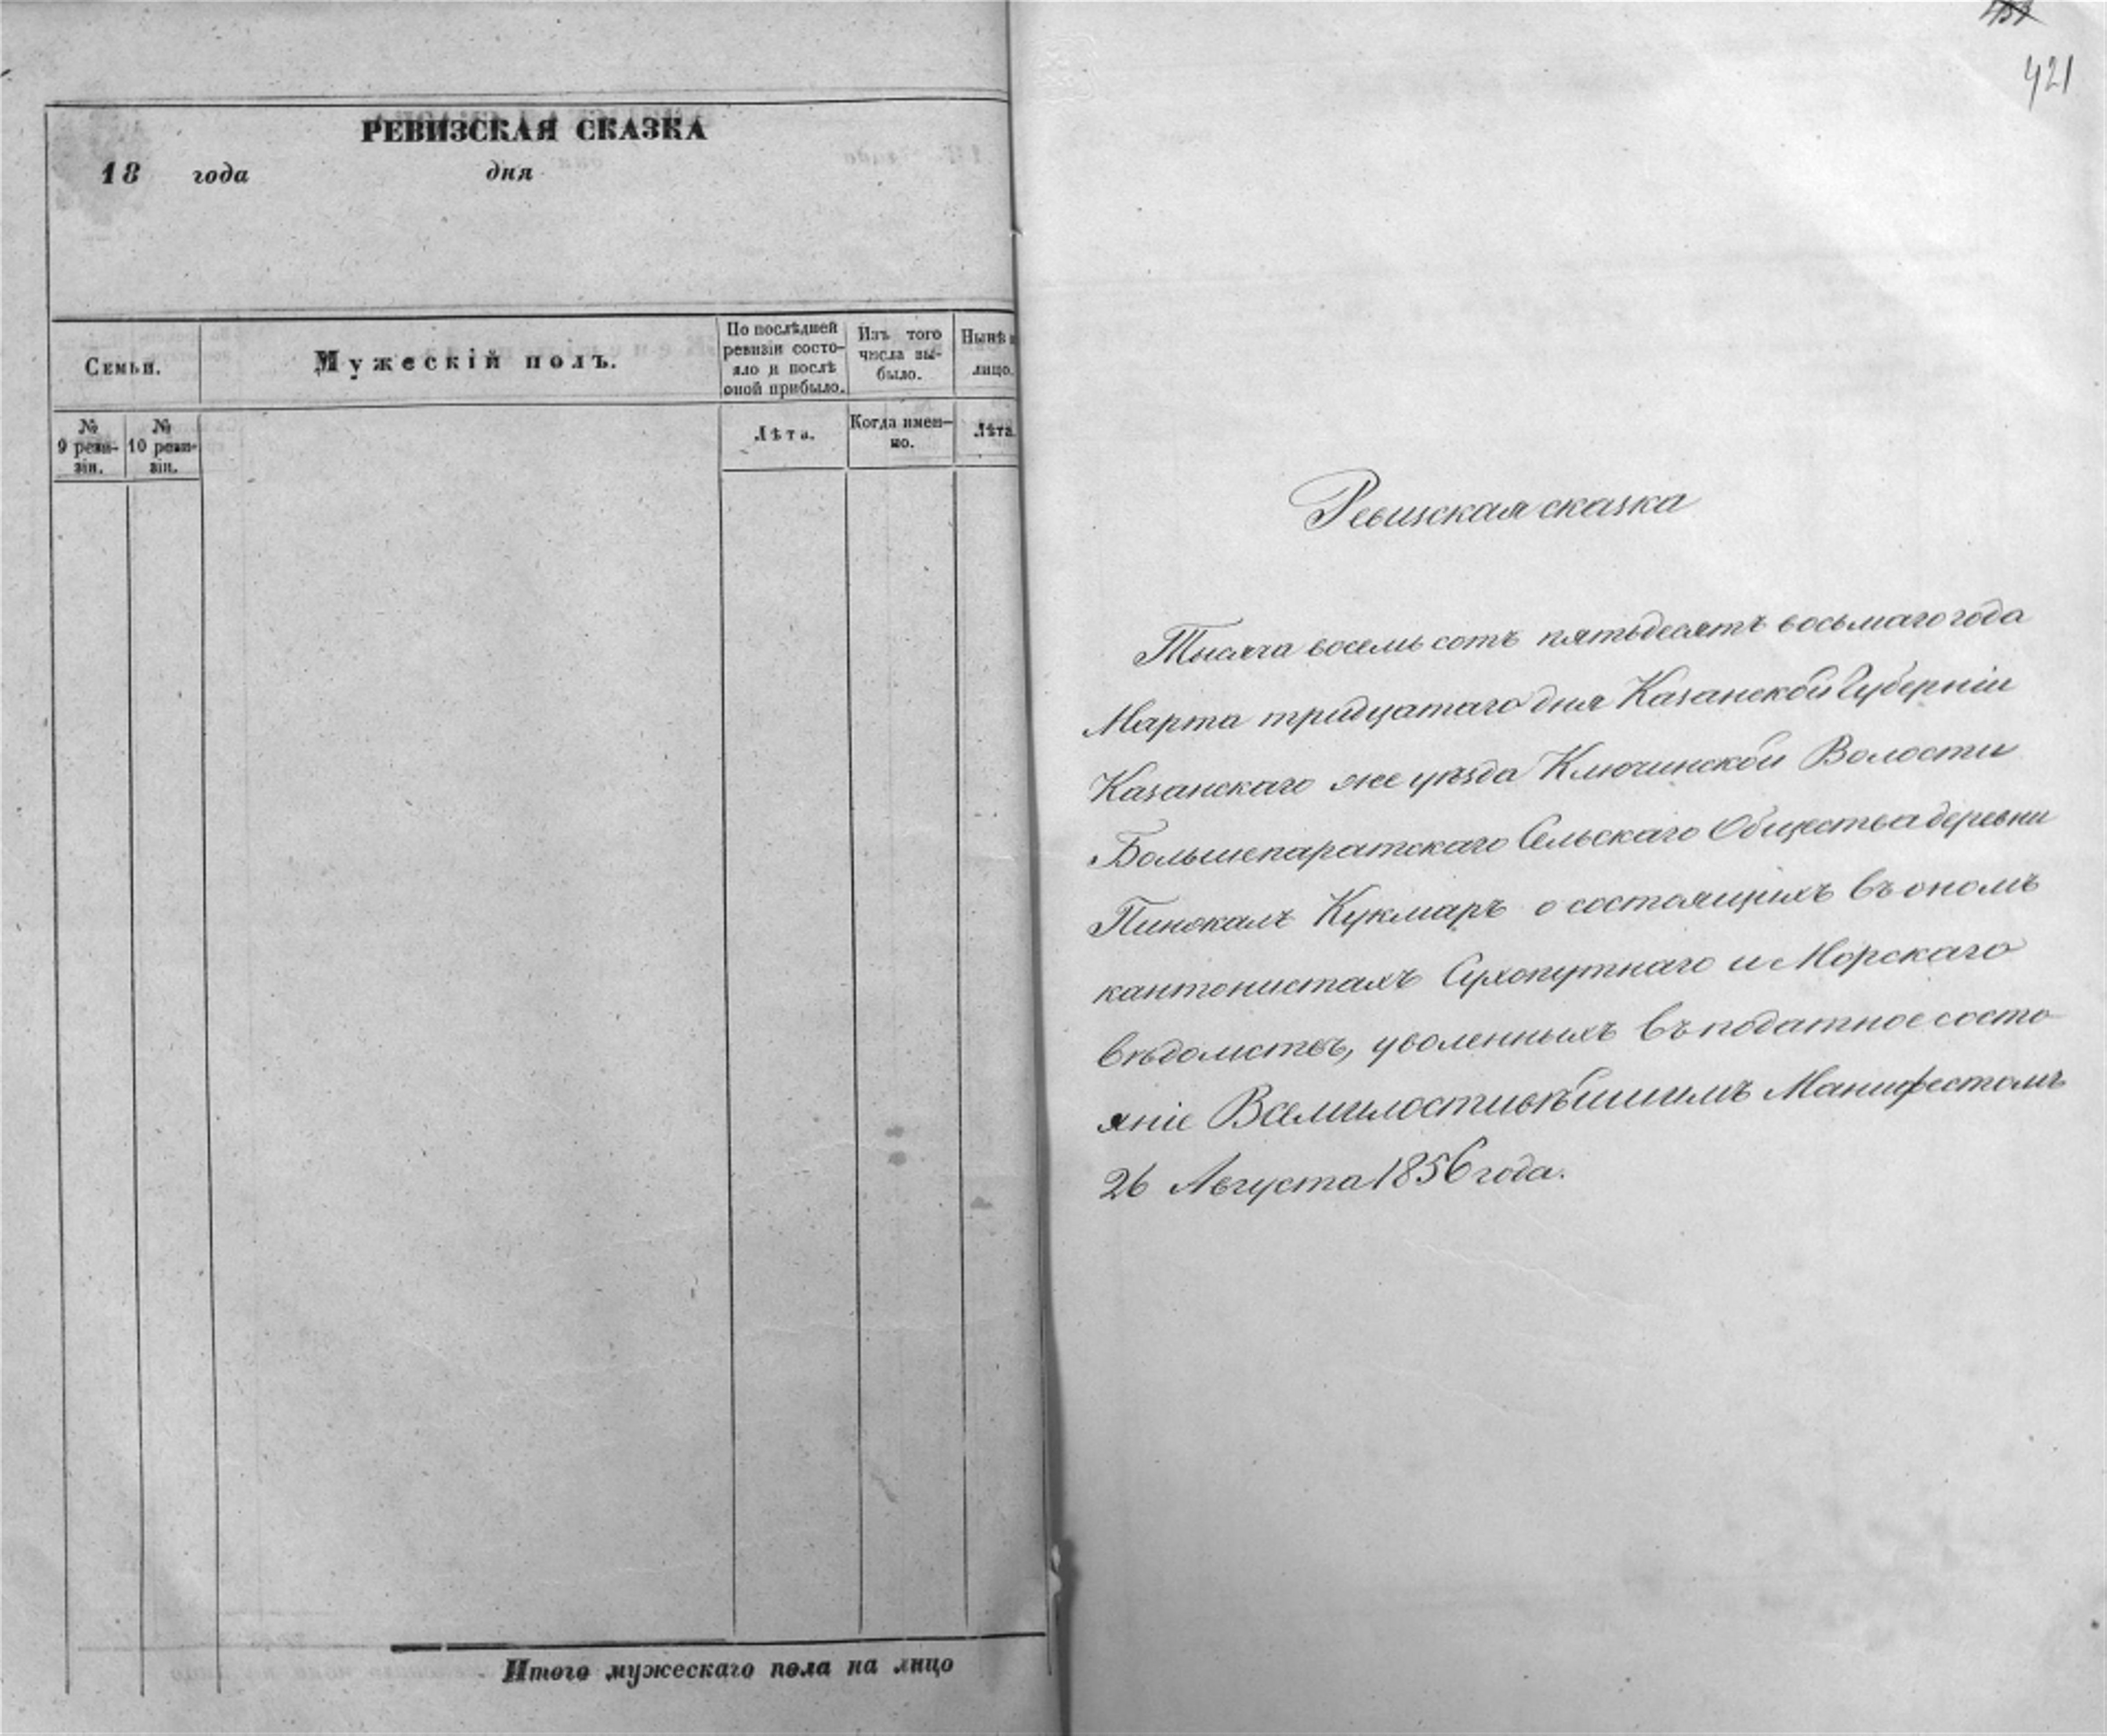 РЕВИЗСКАЯ СКАЗКА
18 года дня
Семьи.
Мужескій полъ.
По послѣдней
ревизіи состо-
яло и послѣ
оной прибыло.
Изъ того
числа вы-
было.
Нынѣ
лицо.
№
9 реви-
зіи.
№
10 реви-
зіи.
Лѣта.
Когда имен-
но.
Лѣта.
Итого мужескаго пола на лицо
421
Ревизская сказка
Тысяча восемь сотъ пятьдесятъ восьмаго года
Марта тридцатаго дня Казанской Губерніи
Казанскаго же уѣзда Ключинской Волости
Большепаратскаго Сельскаго Общества деревни
Кукмаръ о состоящихъ въ ономъ
кантонистахъ Сухопутнаго и Морскаго
вѣдомствъ, уволенныхъ въ податное состо-
яніе Всемилостивѣйшимъ Манифестомъ
26 Августа 1856 года.